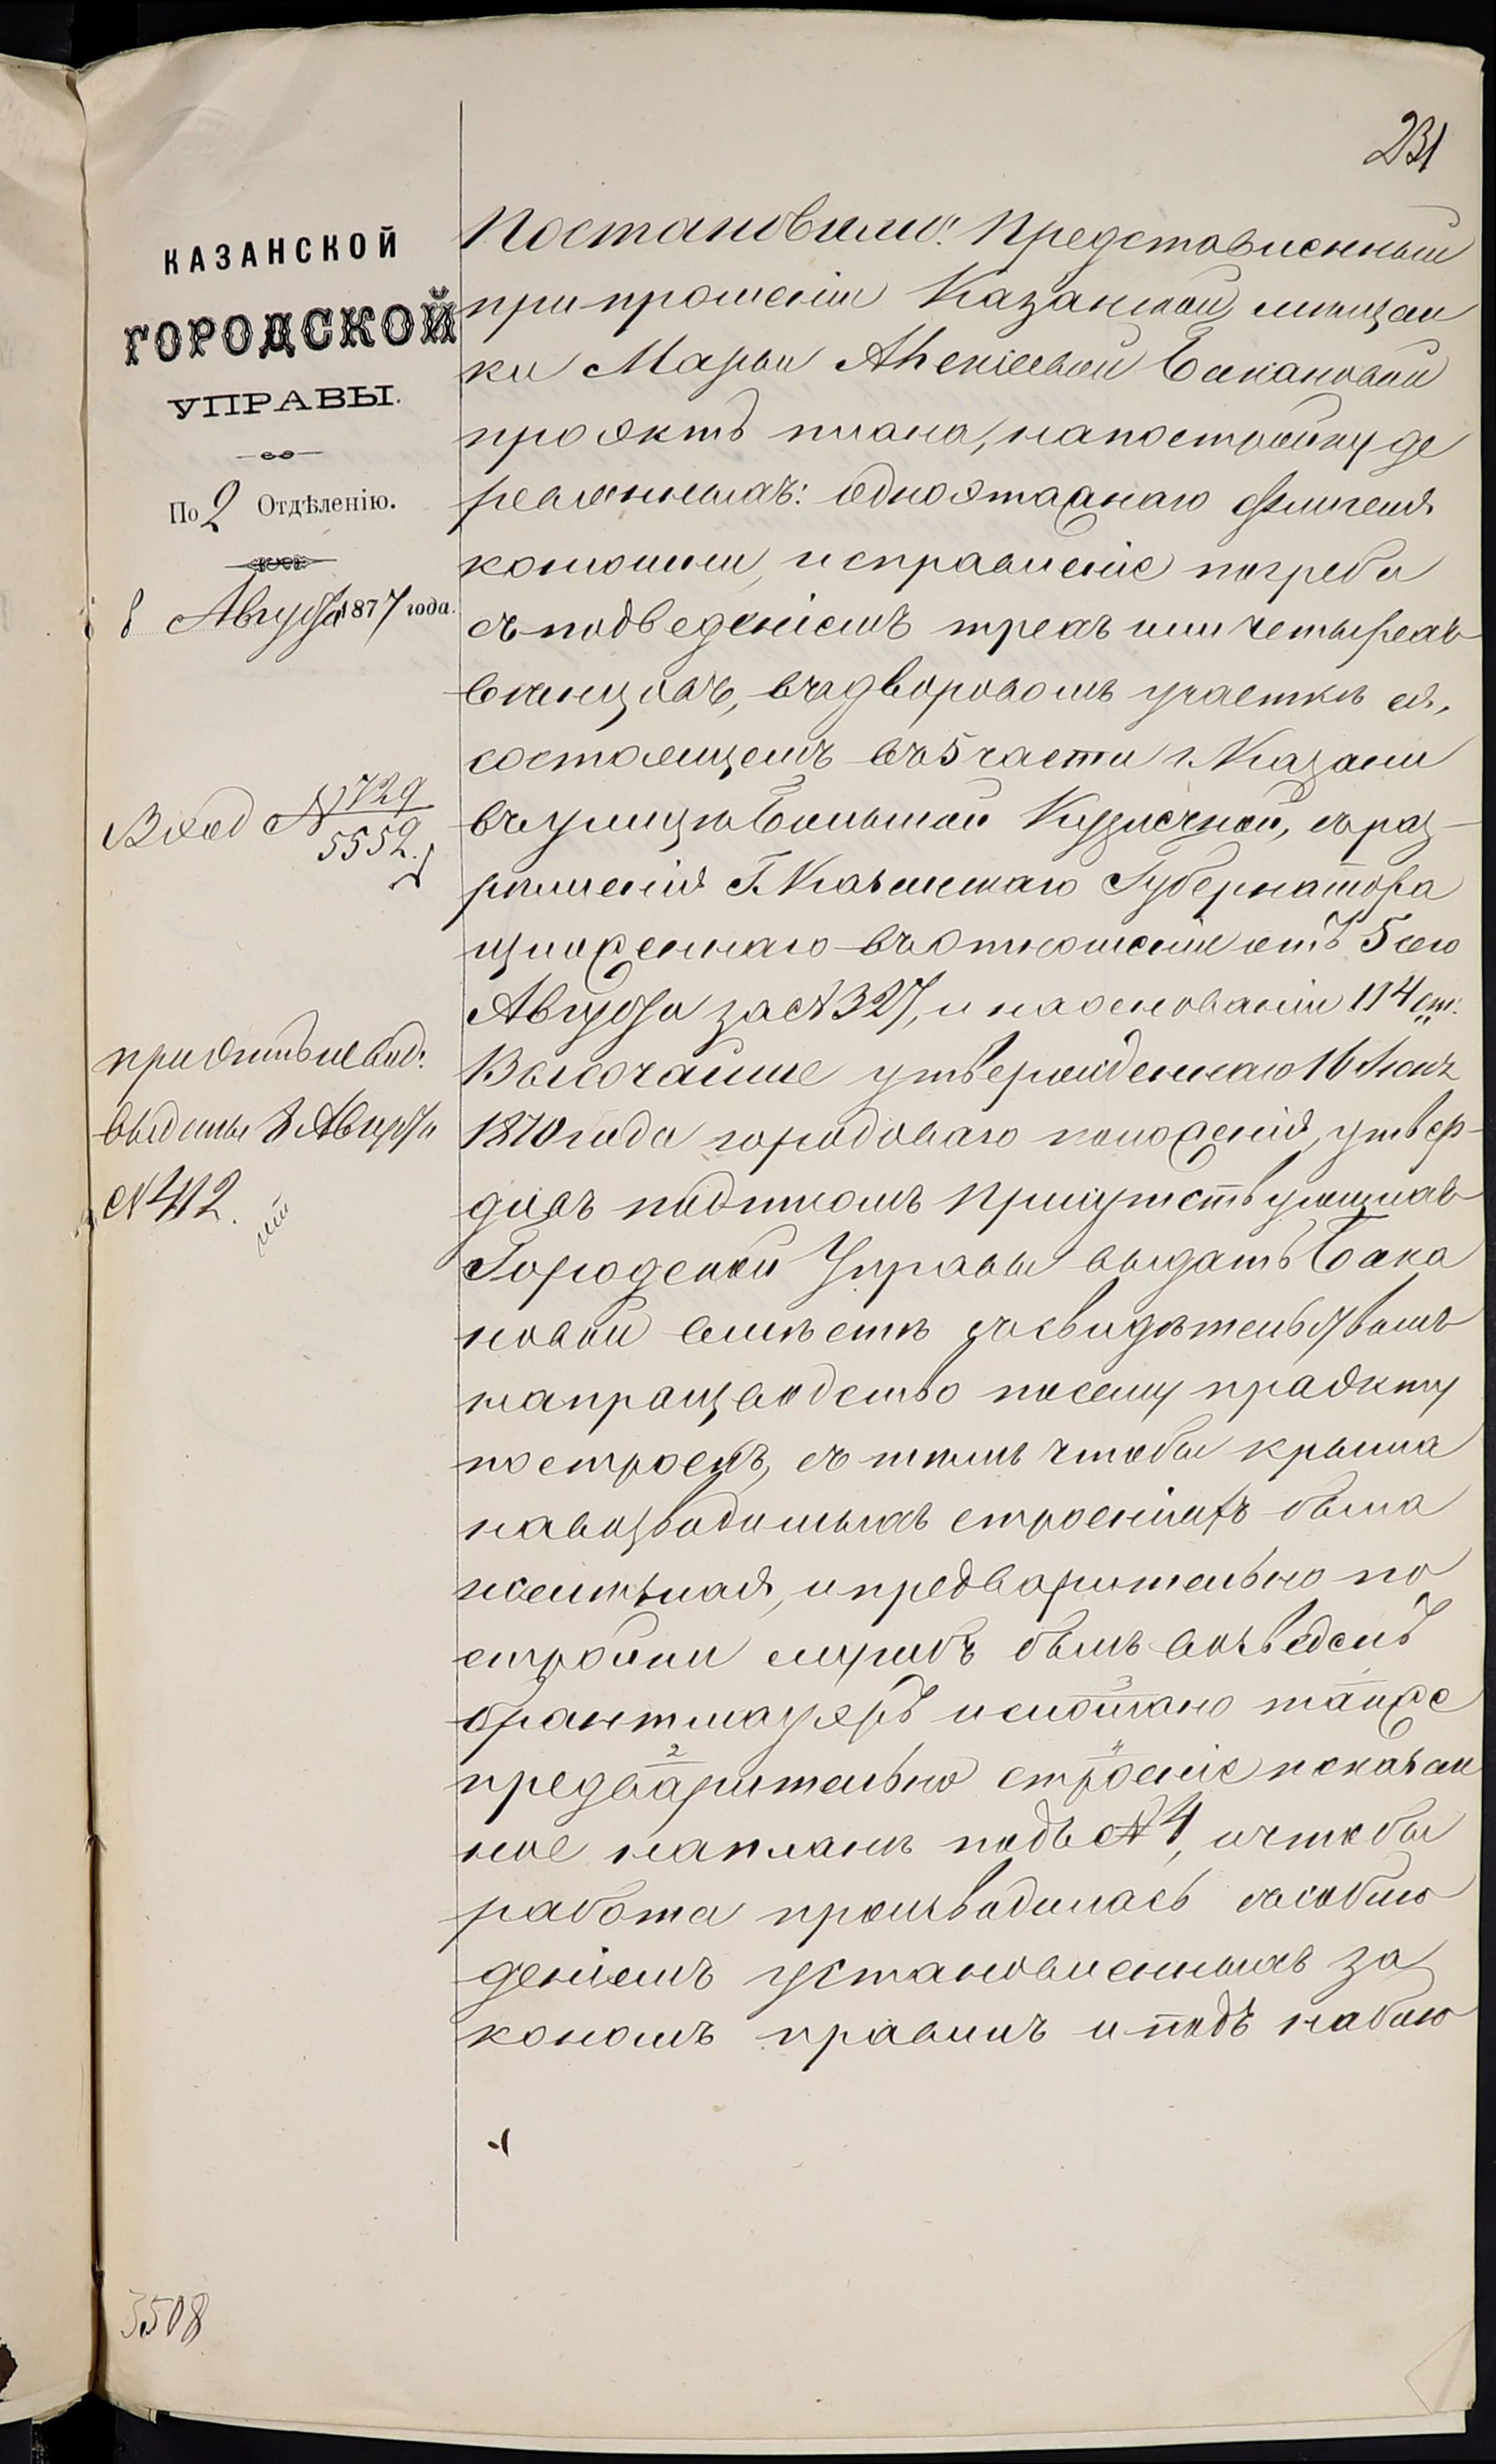 231
КАЗАНСКОЙ
ГОРОДСКОЙ
УПРАВЫ.
По 2 Отдѣленію.
8 Августа 1877 года.
Вход № 729
5552.
выданы 8 Августа
№ 412.
3508
Постановили: Представленный
при прошеніи Казанской мѣщан
ки Марьи Алексѣевой Бакановой
проэктъ плана, на постройку де
ревянныхъ: одноэтажнаго флигеля
конюшни, исправленіе погреба
съ подведеніемъ трехъ или четырехъ
венцовъ, въ дворовомъ участкѣ ея,
состоящемъ въ 5 части г. Казани
въ улицѣ Большой Кузнечной, съ раз-
рѣшенія Г. Казанскаго Губернатора
изложеннаго въ отношеніи отъ 5 сего
Августа за № 327, и на основаніи 114 ст.
Высочайше утвержденнаго 16 Іюня
1870 года городоваго положенія, утвер-
дивъ подписомъ присутствующихъ
Городской Управы выдать Бака
новой вмѣстѣ съ свидѣтельствомъ
на производство по сему проэкту
построекъ, съ тѣмъ чтобы крыша
на возводимыхъ строеніяхъ была
желѣзная, и предварительно по
стройки службъ былъ возведенъ
брантмауэръ и сломано также
предварительно строеніе показан
ное на планѣ подъ № 4, и чтобы
работа производилась съ соблю
деніемъ установленныхъ за
кономъ правилъ и подъ наблю